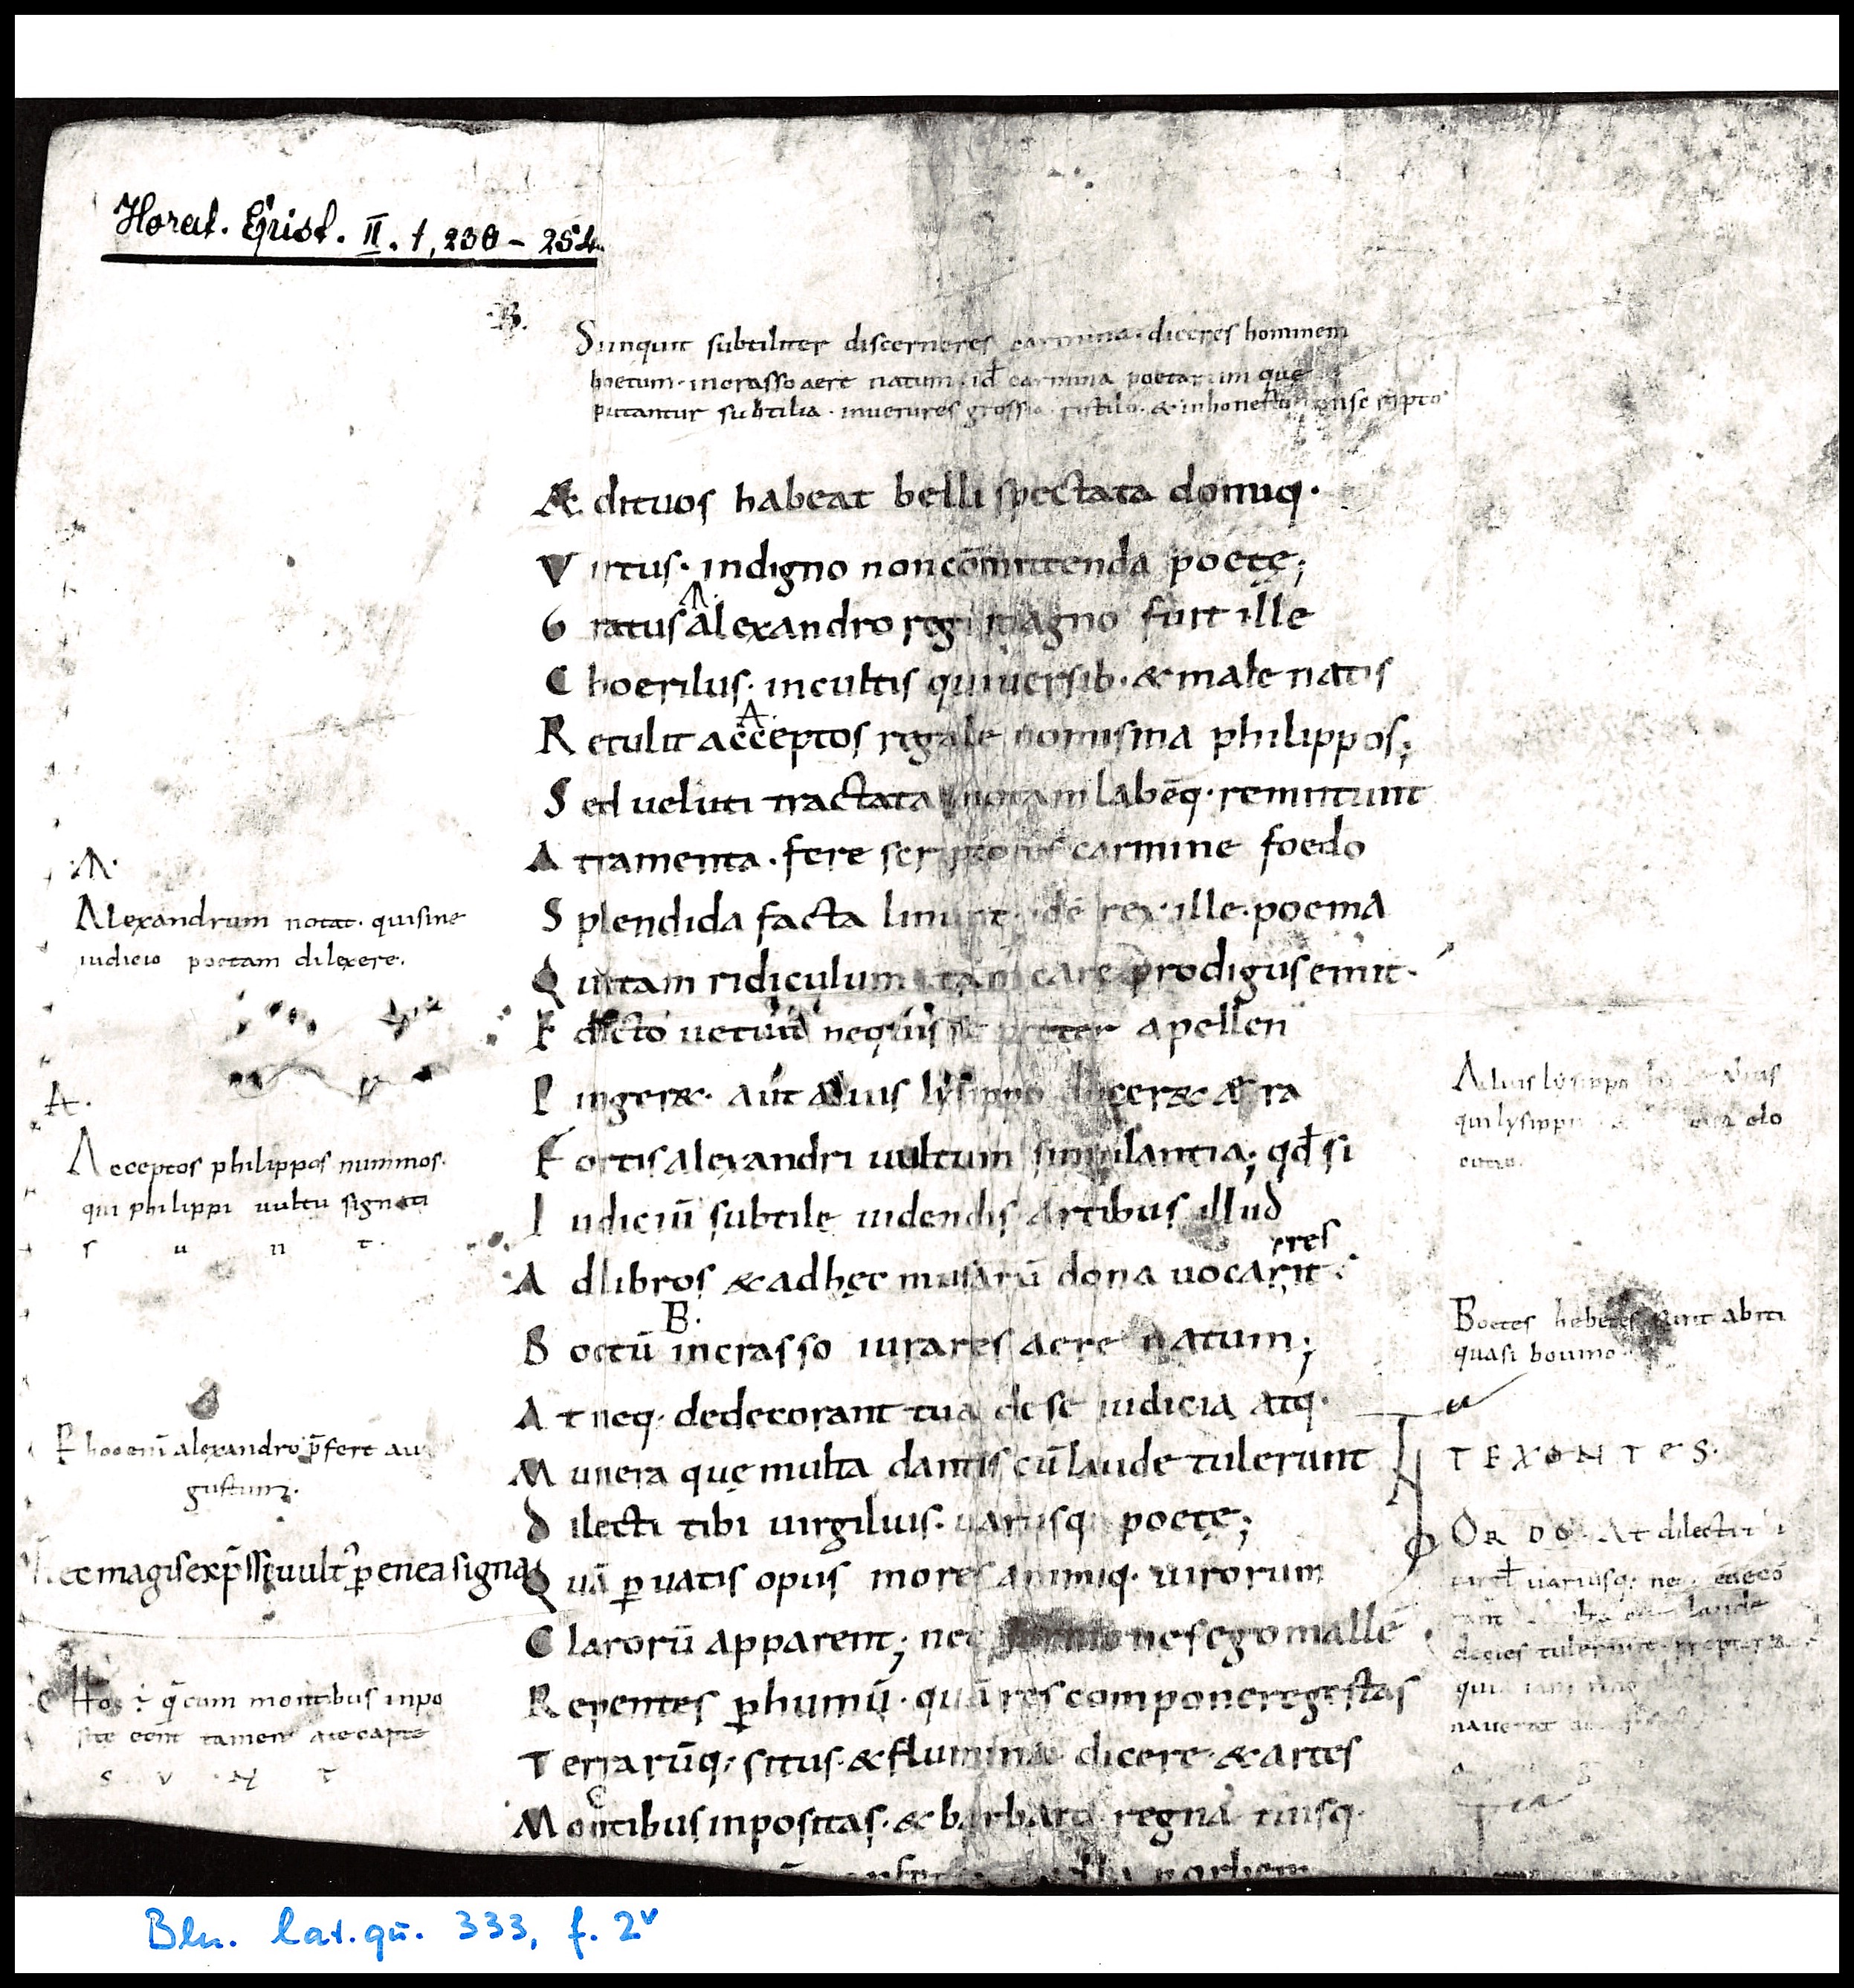 Horat. Epist. II. 1, 230 – 254.
·B·
Sunquit subtiliter discerneres carmina· diceres hominem
boetum· incrasso aere natum· id carmina poetarum que
putantur subtilia· inuenires grosso· &inhonesto
Æ dituos habeat belli spectata domiq·
V irtus· indigno noncōmittenda poetę;
Λ·
G ratus alexandro regi magno fuit ille
C hoerilus· incultis qui uersib· & male natis
A·
R etulit acceptos regale nomisma philippos;
S ed ueluti tractata notam labēq· remittunt
A tramenta· fere scriptores carmine foedo
S plendida facta linunt· idē rex ille· poema
Q uitam ridiculum tam care prodigus emit·
E dicto uetuit nequis se preter apellen
P inger&· aut alius lysippo ducer& æra
F ortis alexandri uultum simulantia; qđ si
I udiciū subtile uidendis artibus illud
rres
A dlibros & adhęc musarū dona uocarit·
B·
B oetū incrasso iurares aere natum;
A t neq· dedecorant tua de se iudicia atq·
M unera quę multa dantis cū laude tulerunt
D ilecti tibi uirgilius· uariusq· poetę;
Q uā ꝑ uatis opus mores animiq· uirorum
C larorū apparent; nec sermones ego mallē
R epentes ꝑhumū· quā res componere gestas
T errarūq; situs· & flumina dicere· & artes
C
M ontibus inpositas· & barbara regna tuisq·
·Λ·
Alexandrum notat· qui sine
iudicio poetam dilexere.
A·
Acceptos philippos nummos·
qui philippi uultu signati
s u n t·
P hoc enī alexandro p̄fert au
gustum·
ec magis exp̄ssi uult ꝑ enea signa
C Hoc ÷ cum montibus inpo
site eent tamen
S V N T
Alius lysippo
qui lysippi
Boetes hebetes sunt abiti
quasi bouino
TEXONTES·
ORDO· At dilecti
uariusq· laude
tulerunt· propter
quia iam
Bln. lat. qu. 333, f. 2v